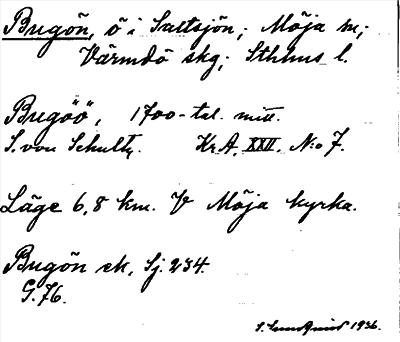 Bugön, ö i Saltsjön; Möja sn;
Värmdö skg; Sthlms l.
Bugöö, 1700-tal. mitt.
S. von Schultz. Kr.A. XXII. N:o 7.
Läge 6,8 km. V Möja kyrka.
Bugön ek, Sj. 234.
G. 76.
S. Lundquist 1936.